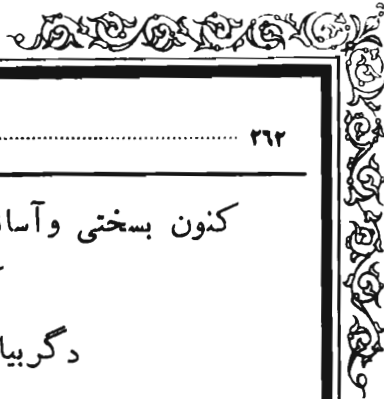 ۲۶۲
کنون بسختی وآسا
دگربیا